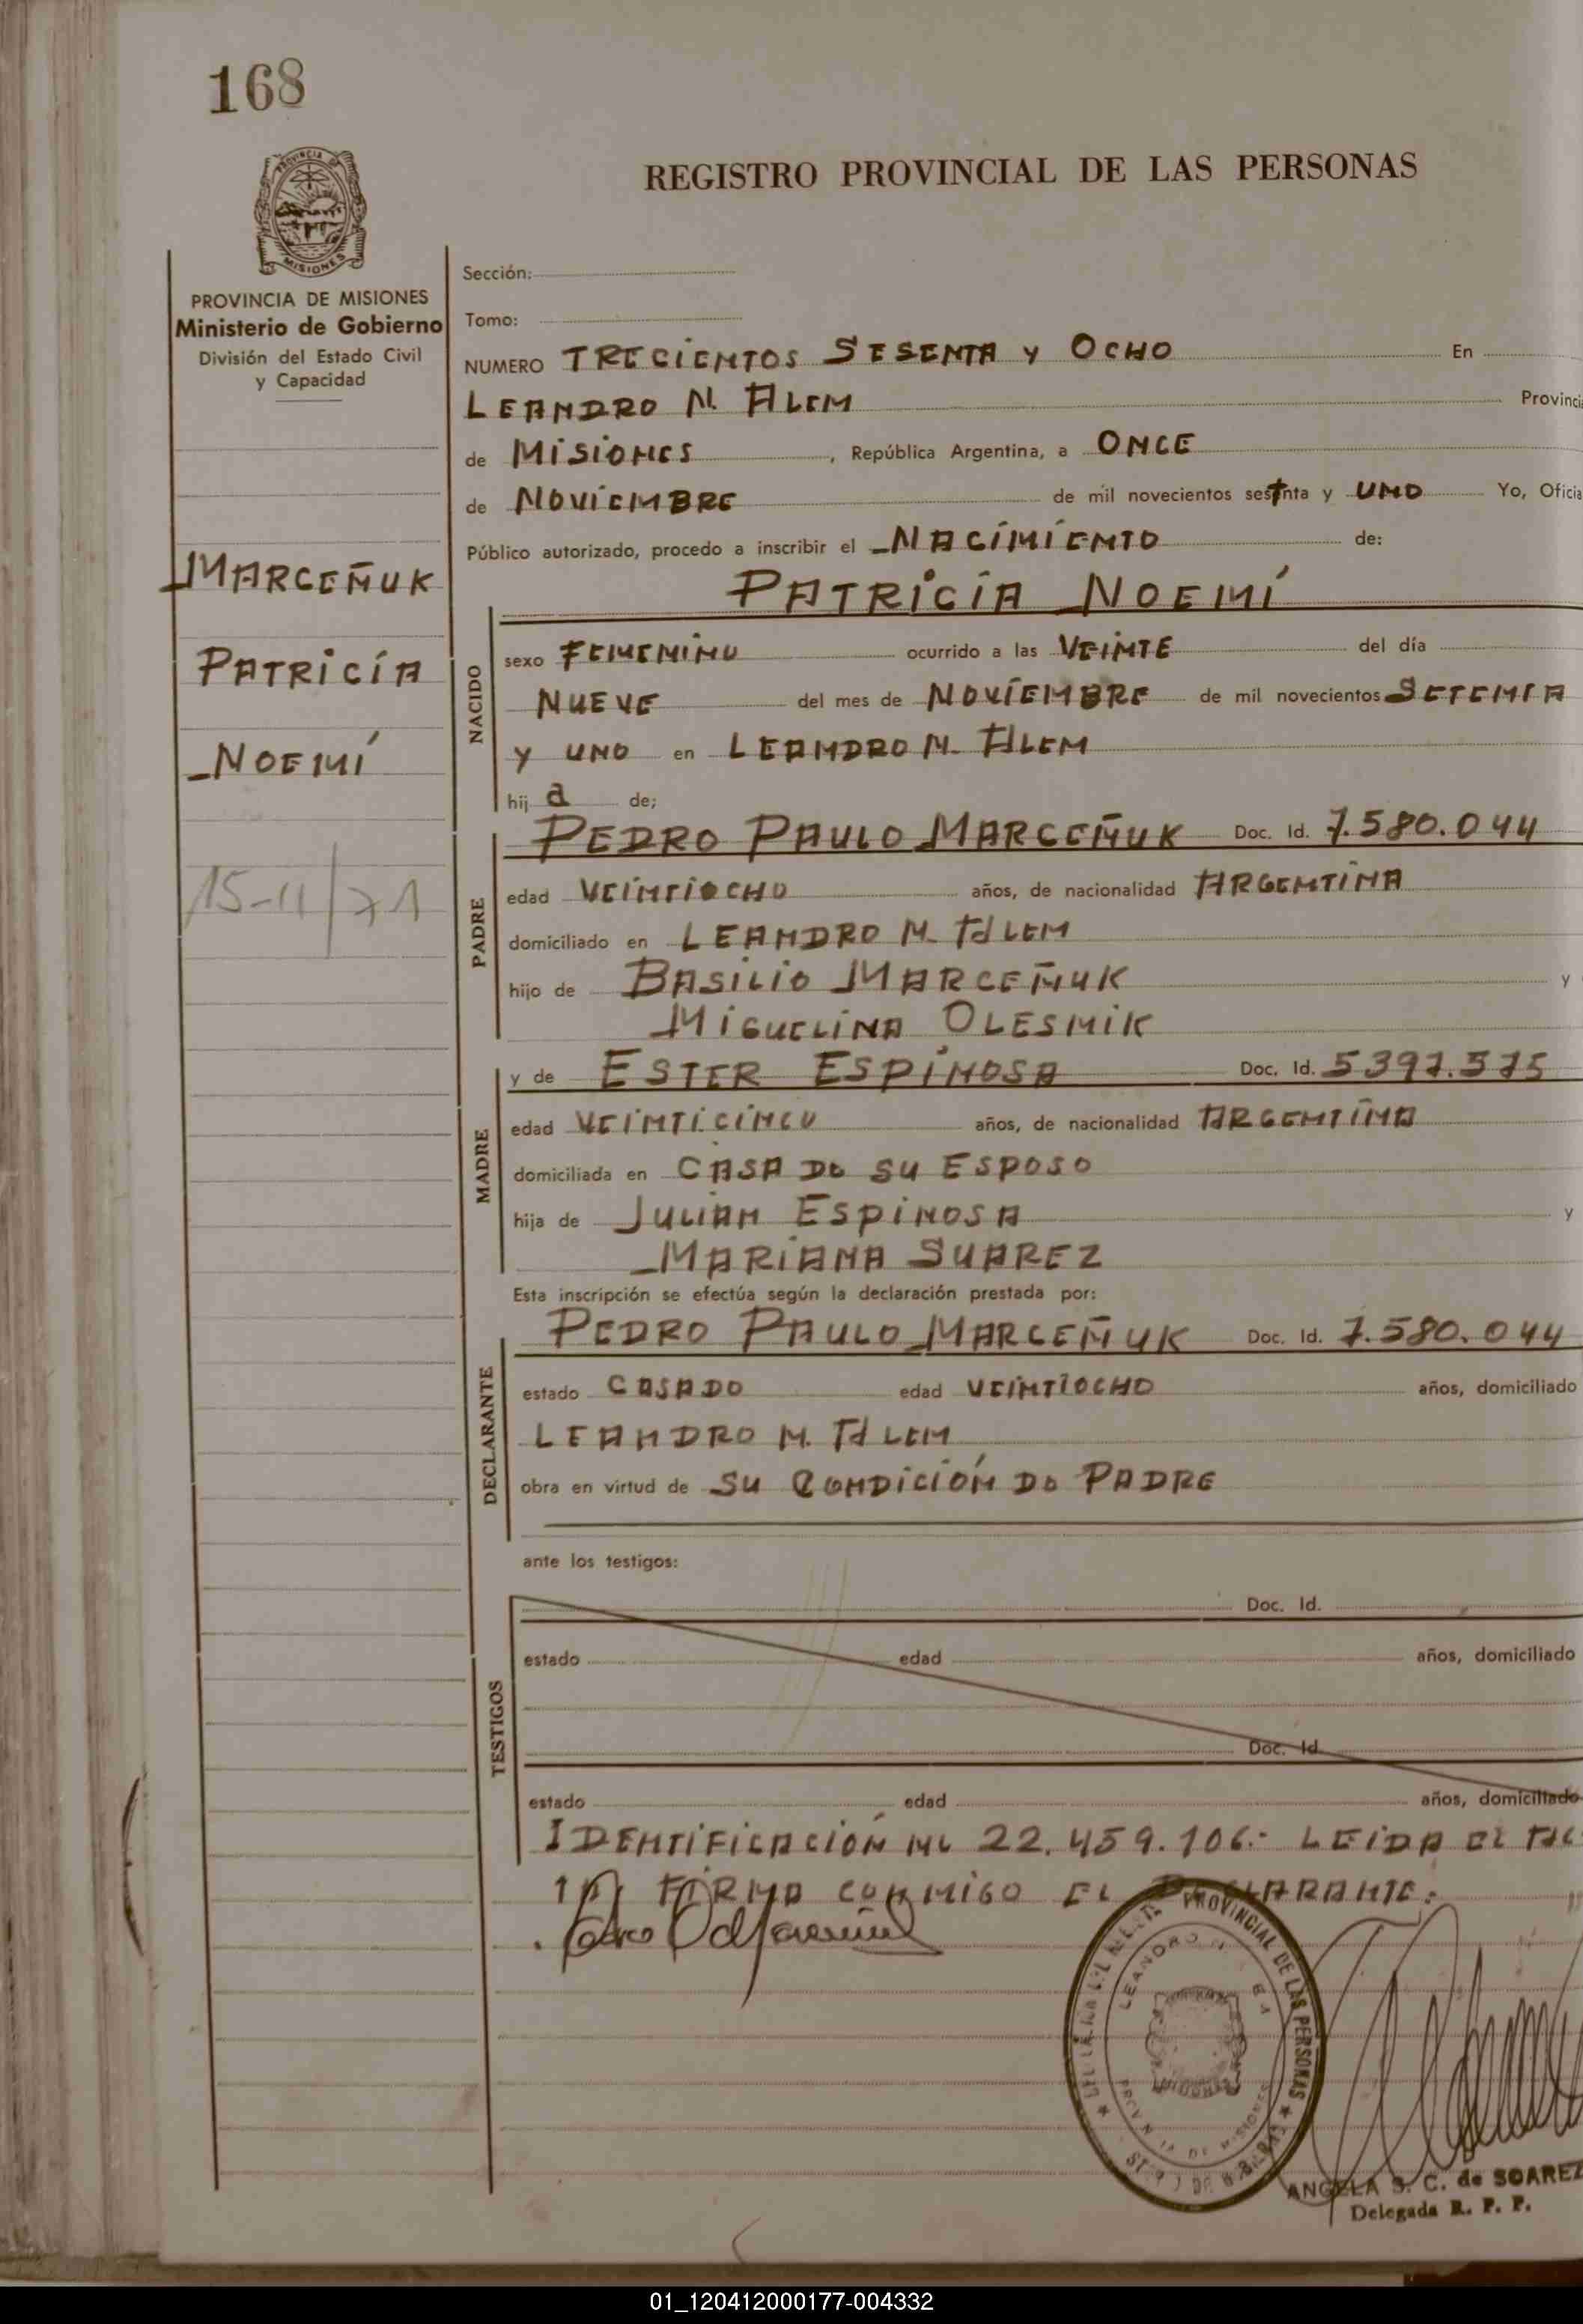 168
REGISTRO PROVINCIAL DE LAS PERSONAS
PROVINCIA DE MISIONES
Ministerio de Gobierno
División del Estado Civil
y Capacidad
MARCEÑUK
PATRICIA
NOEMÍ
15-11/71
Sección:
Tomo:
NUMERO TRECIENTOS SESENTA Y OCHO En
LEANDRO N. ALEM Provincia
de MISIONES, República Argentina, a ONCE
de NOVIEMBRE de mil novecientos setenta y UNO Yo, Oficia
Público autorizado, procedo a inscribir el NACIMIENTO de:
PATRICIA NOEMÍ
NACIDO
sexo FEMENINO ocurrido a las VEINTE del día
NUEVE del mes de NOVIEMBRE de mil novecientos SETENTA
Y UNO en LEANDRO N. ALEM
hij a de;
PADRE
PEDRO PAULO MARCEÑUK Doc. Id. 7.580.044
edad VEINTIOCHO años, de nacionalidad ARGENTINA
domiciliado en LEANDRO N. ALEM
hijo de BASILIO MARCEÑUK y
MIGUELINA OLESNIK
MADRE
y de ESTER ESPINOSA Doc. Id. 5397.575
edad VEINTICINCO años, de nacionalidad ARGENTINA
domiciliada en CASA DE SU ESPOSO
hija de JULIAN ESPINOSA y
MARIANA SUAREZ
Esta inscripción se efectúa según la declaración prestada por:
DECLARANTE
PEDRO PAULO MARCEÑUK Doc. Id. 7.580.044
estado CASADO edad VEINTIOCHO años, domiciliado
LEANDRO N. ALEM
obra en virtud de SU CONDICIÓN DE PADRE
ante los testigos:
TESTIGOS
Doc. Id.
estado edad años, domiciliado
Doc. Id.
estado edad años, domiciliado
IDENTIFICACIÓN Nº 22.459.106.- LEIDA EL AC
TA, FIRMA CONMIGO EL DECLARANTE.
PROVINCIAL DE LAS PERSONAS
LEANDRO N.
MISIONES
ANGELA S. C. de SOAREZ
Delegada R. P. P.
01_120412000177-004332